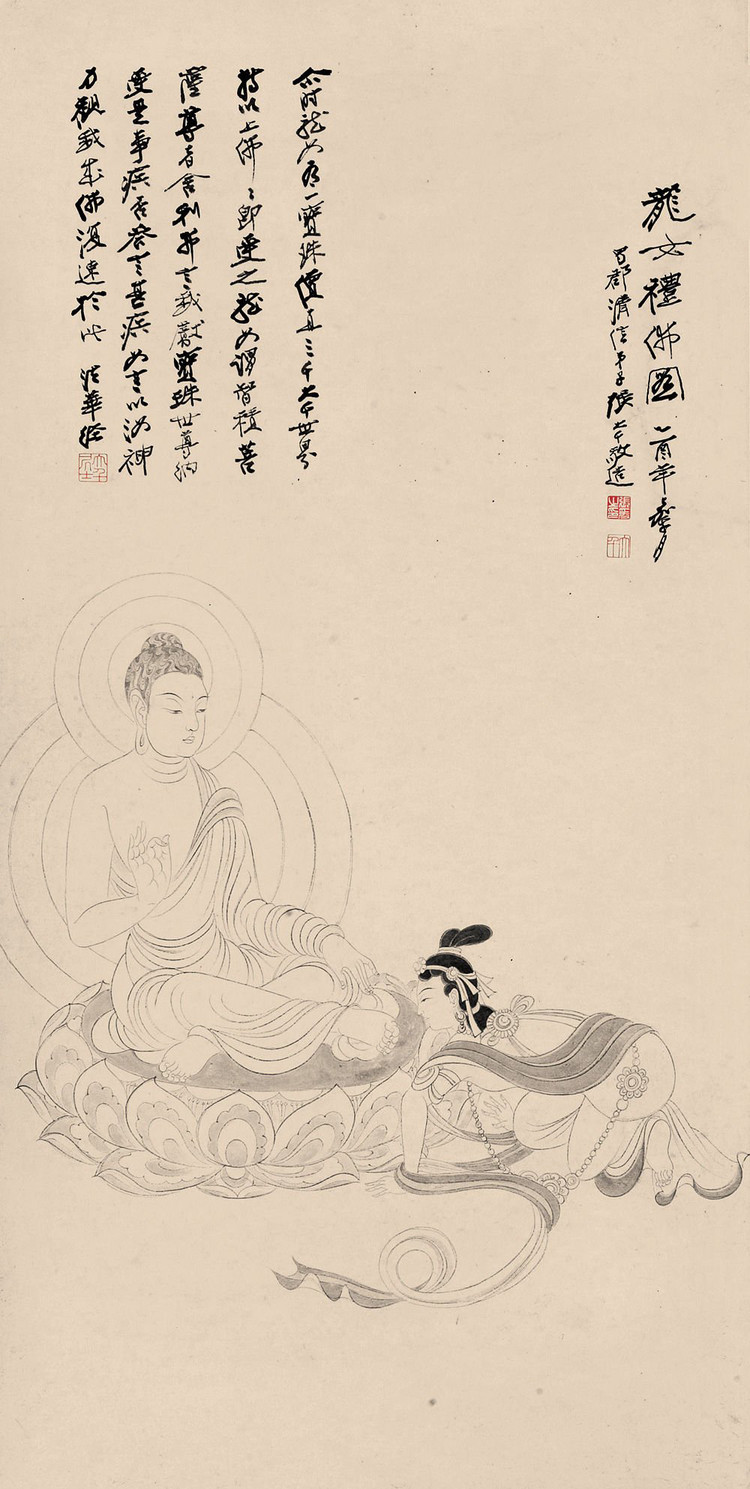 龍女禮佛圖 乙酉年月
蜀郡清信弟子張大千敬造
張爰之印
大千
尒時龍女有一寶珠價直三千大千世界
持以上佛〻即受之龍女謂智積菩
薩尊者舍利弗言我獻寶珠世尊納
受是事疾否答言甚疾女言以汝神
力觀我成佛復速於此 法華經
大千居士